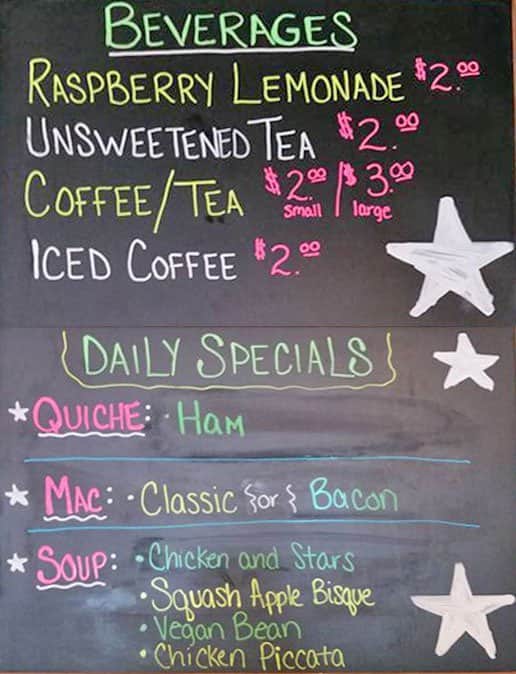 BEVERAGES
RASPBERRY LEMONADE $2.00
UNSWEETENED TEA $2.00
COFFEE/TEA $2.00 small / $3.00 large
ICED COFFEE $2.00
DAILY SPECIALS
QUICHE: · Ham
MAC: · Classic {or} Bacon
SOUP: · Chicken and Stars
· Squash Apple Bisque
· Vegan Bean
· Chicken Piccata